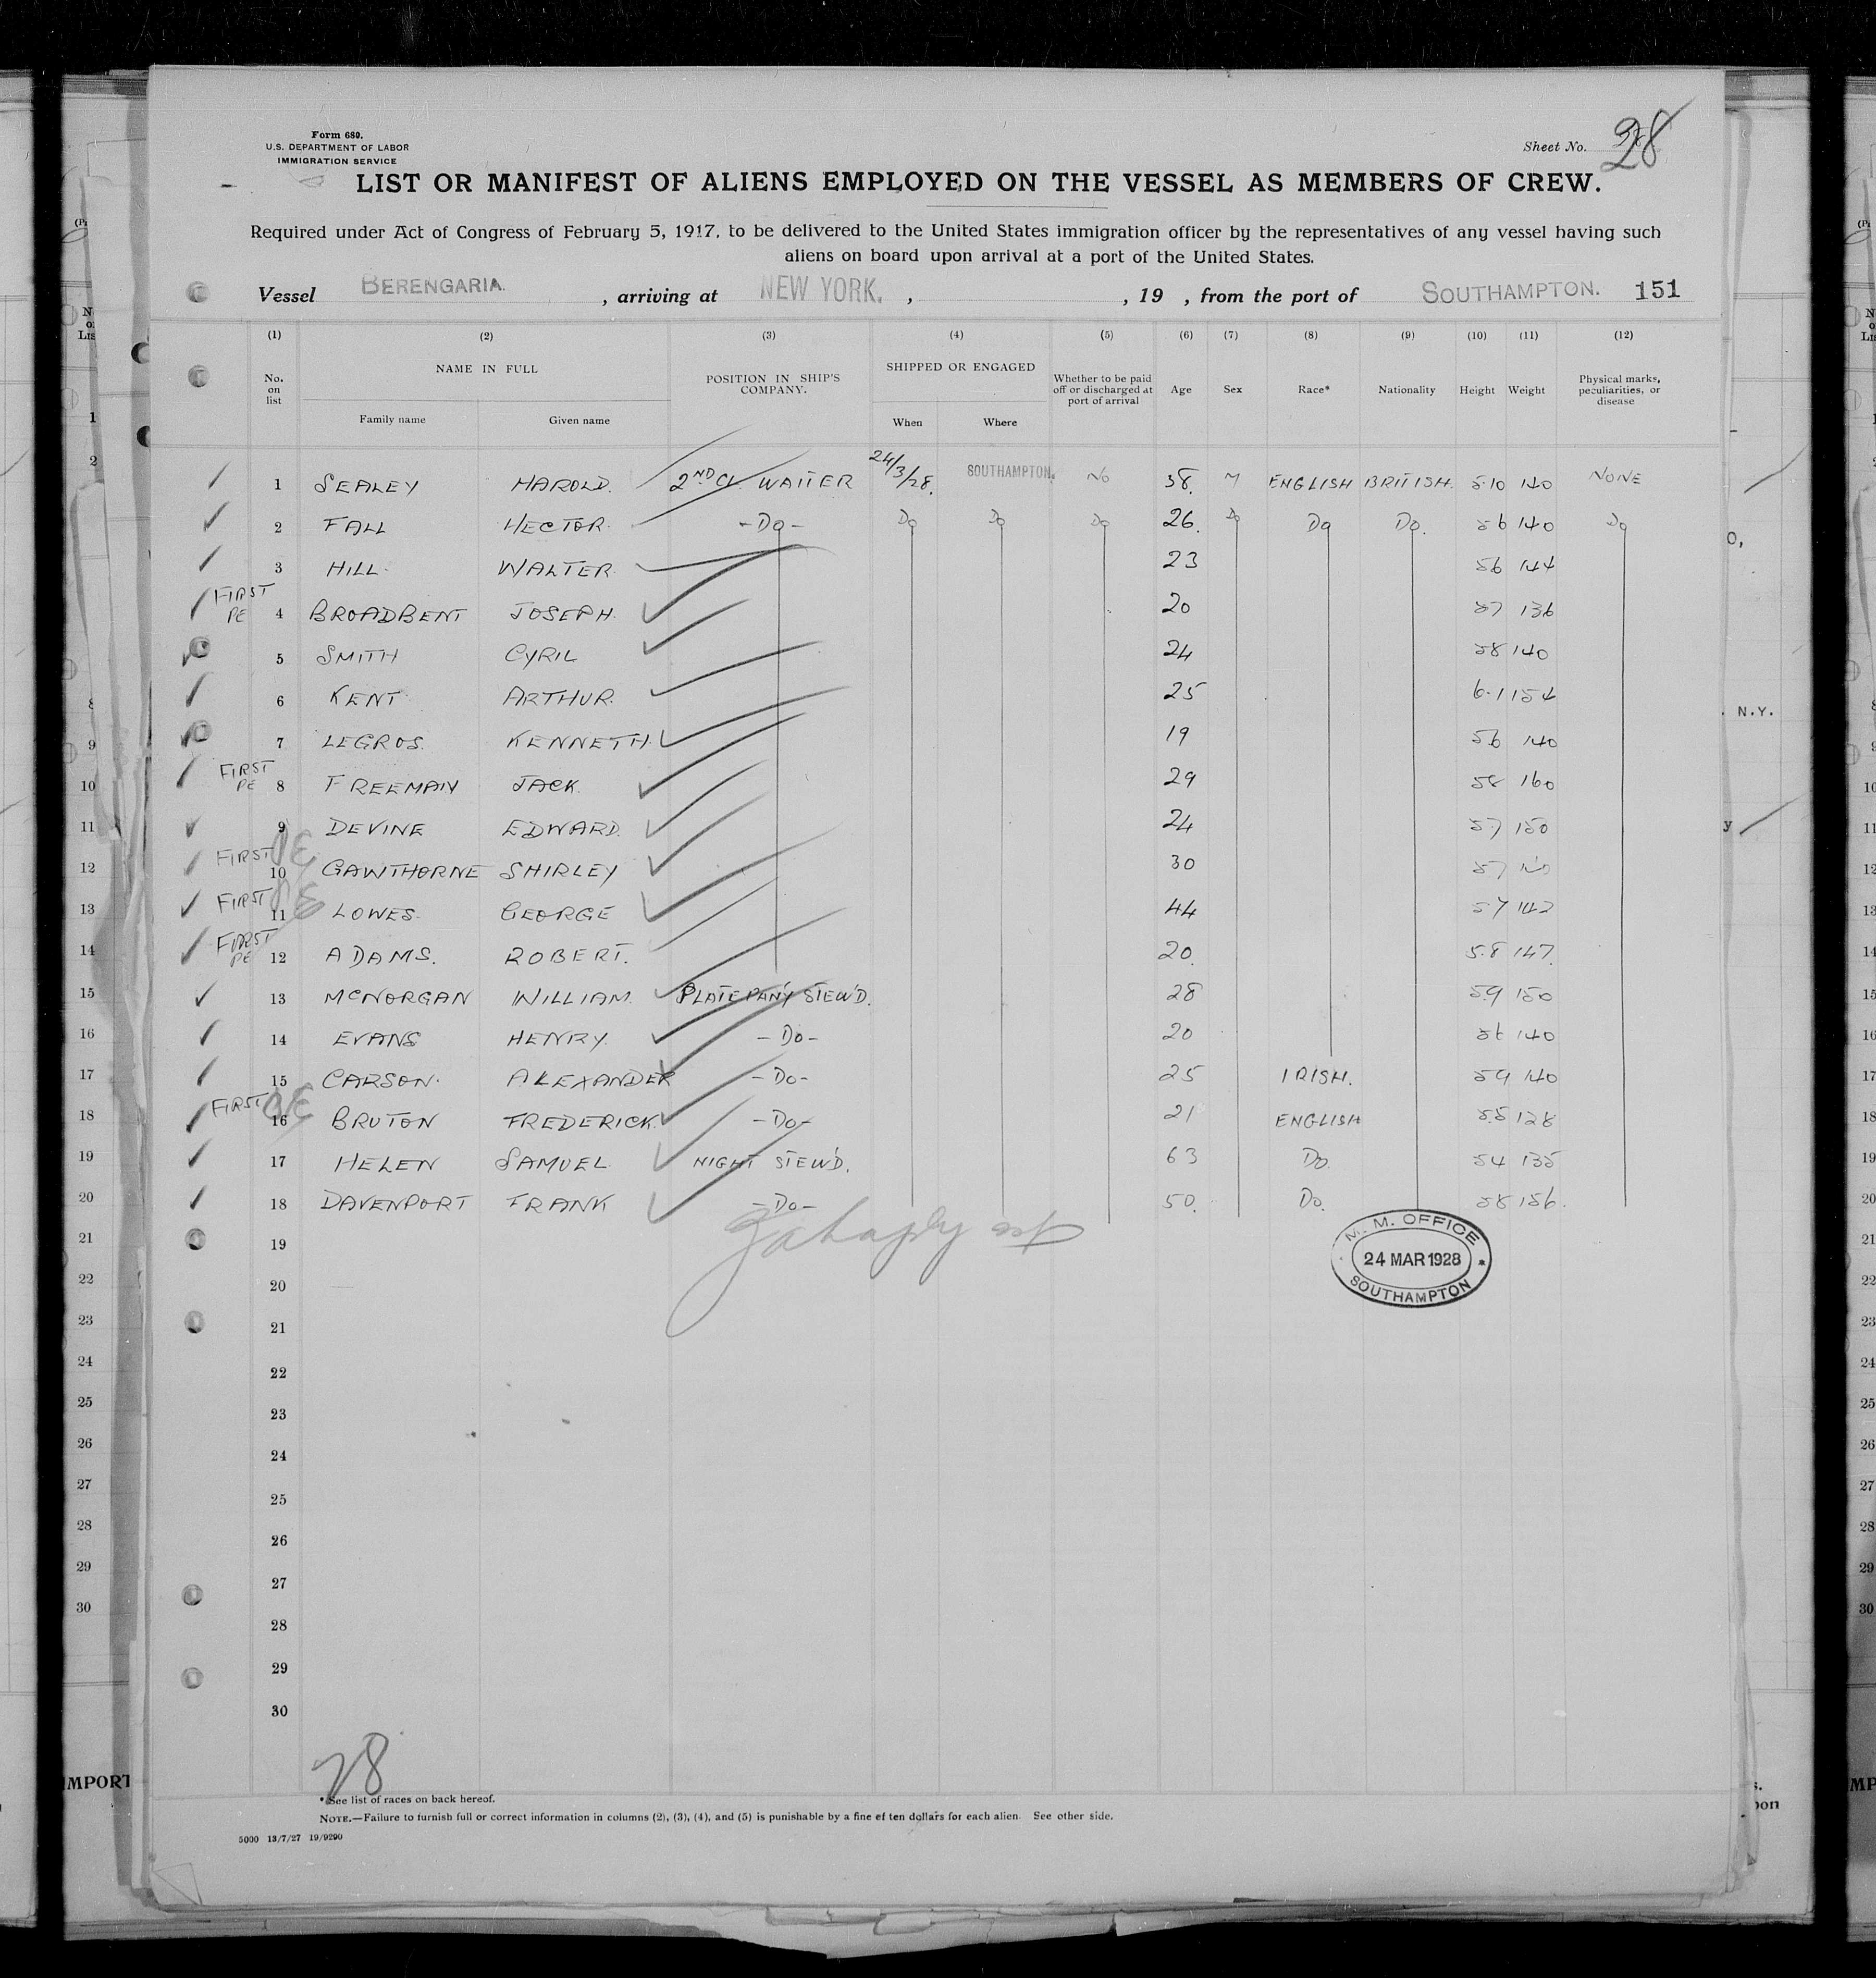 Form 680.
U.S. DEPARTMENT OF LABOR
IMMIGRATION SERVICE
Sheet No. 28
LIST OR MANIFEST OF ALIENS EMPLOYED ON THE VESSEL AS MEMBERS OF CREW.
Required under Act of Congress of February 5, 1917, to be delivered to the United States immigration officer by the representatives of any vessel having such
aliens on board upon arrival at a port of the United States.
Vessel BERENGARIA. , arriving at NEW YORK. , , 19 , from the port of SOUTHAMPTON. 151
(1) (2) (3) (4) (5) (6) (7) (8) (9) (10) (11) (12)
No. on list NAME IN FULL Family name Given name POSITION IN SHIP'S COMPANY. SHIPPED OR ENGAGED When Where Whether to be paid off or discharged at port of arrival Age Sex Race* Nationality Height Weight Physical marks, peculiarities, or disease
1 SEALEY HAROLD. 2ND CL WAITER 24/3/28. SOUTHAMPTON. NO 38. M ENGLISH BRITISH. 5 10 140 NONE
2 FALL HECTOR. -Do- Do Do Do 26. Do Do Do. 56 140 Do
3 HILL. WALTER. 23 56 144
FIRST PE 4 BROADBENT JOSEPH. 20 57 136
5 SMITH CYRIL 24 58 140
6 KENT ARTHUR. 25 6.1 154
7 LEGROS. KENNETH. 19 56 140
FIRST PE 8 FREEMAN JACK. 29 58 160
9 DEVINE EDWARD. 24 57 150
FIRST PE 10 GAWTHORNE SHIRLEY 30 57
FIRST PE 11 LOWES. GEORGE 44 57 142
FIRST PE 12 ADAMS. ROBERT. 20. 5.8 147.
13 McNORGAN WILLIAM. PLATEPANY STEW'D. 28 59 150
14 EVANS HENRY. -Do- 20 56 140
15 CARSON. ALEXANDER -Do- 25 IRISH. 59 140
FIRST PE 16 BRUTON FREDERICK. -Do- 21 ENGLISH 5.5 128
17 HELEN SAMUEL. NIGHT STEW'D. 63 Do. 54 135
18 DAVENPORT FRANK -Do- 50. Do. 58 156.
19
20
21
22
23
24
25
26
27
28
29
30
M. M. OFFICE
24 MAR 1928
SOUTHAMPTON
28
* See list of races on back hereof.
NOTE.—Failure to furnish full or correct information in columns (2), (3), (4), and (5) is punishable by a fine of ten dollars for each alien. See other side.
5000 13/7/27 19/9290